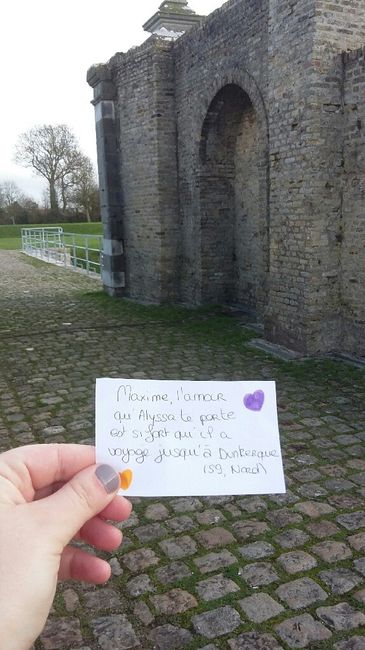 Maxime, l'amour
qu'Alyssa te porte
est si fort qu'il a
voyagé jusqu'à Dunkerque
(59, Nord)